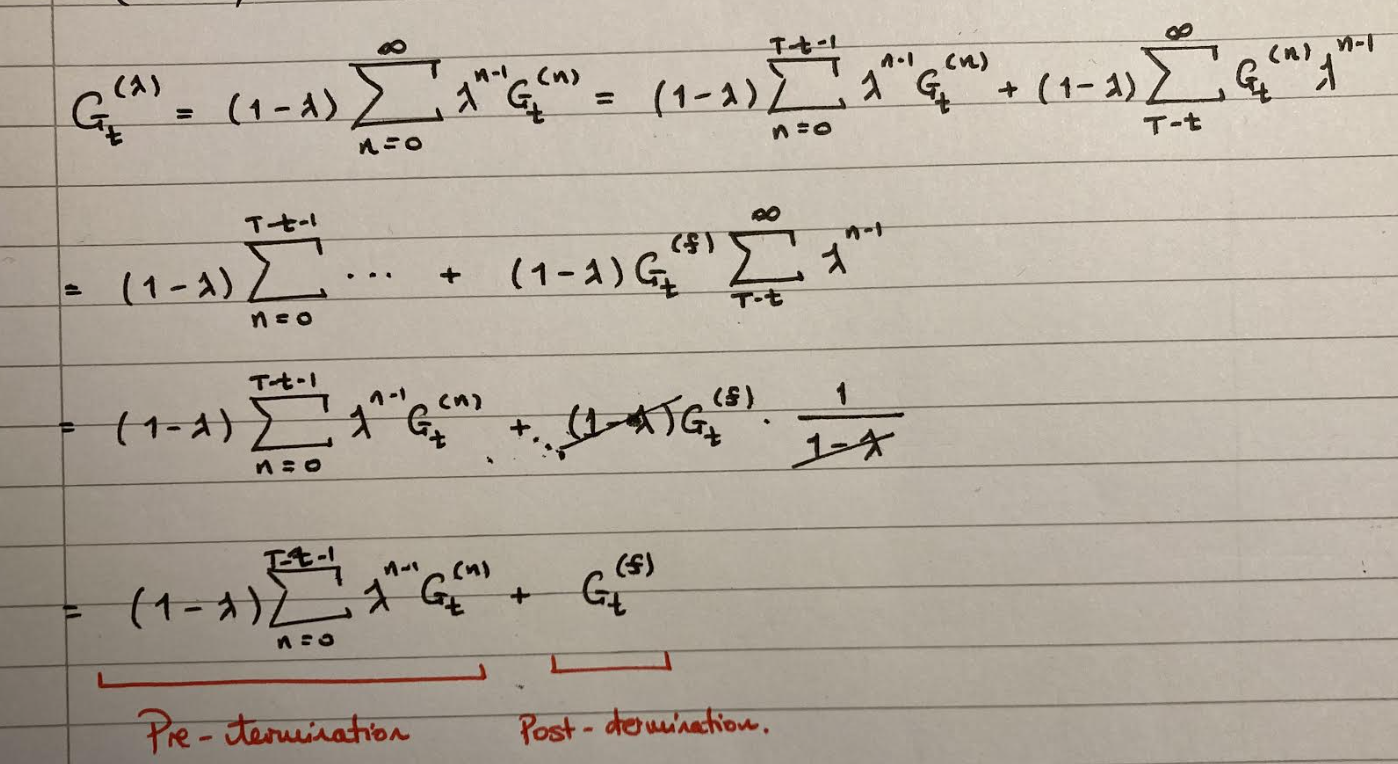 G_t^(λ) = (1-λ) ∑_{n=0}^{∞} λ^{n-1} G_t^(n) = (1-λ) ∑_{n=0}^{T-t-1} λ^{n-1} G_t^(n) + (1-λ) ∑_{T-t}^{∞} G_t^(n) λ^{n-1}
= (1-λ) ∑_{n=0}^{T-t-1} ... + (1-λ) G_t^(f) ∑_{T-t}^{∞} λ^{n-1}
= (1-λ) ∑_{n=0}^{T-t-1} λ^{n-1} G_t^(n) + (1-λ) G_t^(f) · 1/(1-λ)
= (1-λ) ∑_{n=0}^{T-t-1} λ^{n-1} G_t^(n) + G_t^(f)
Pre-termination Post-termination.